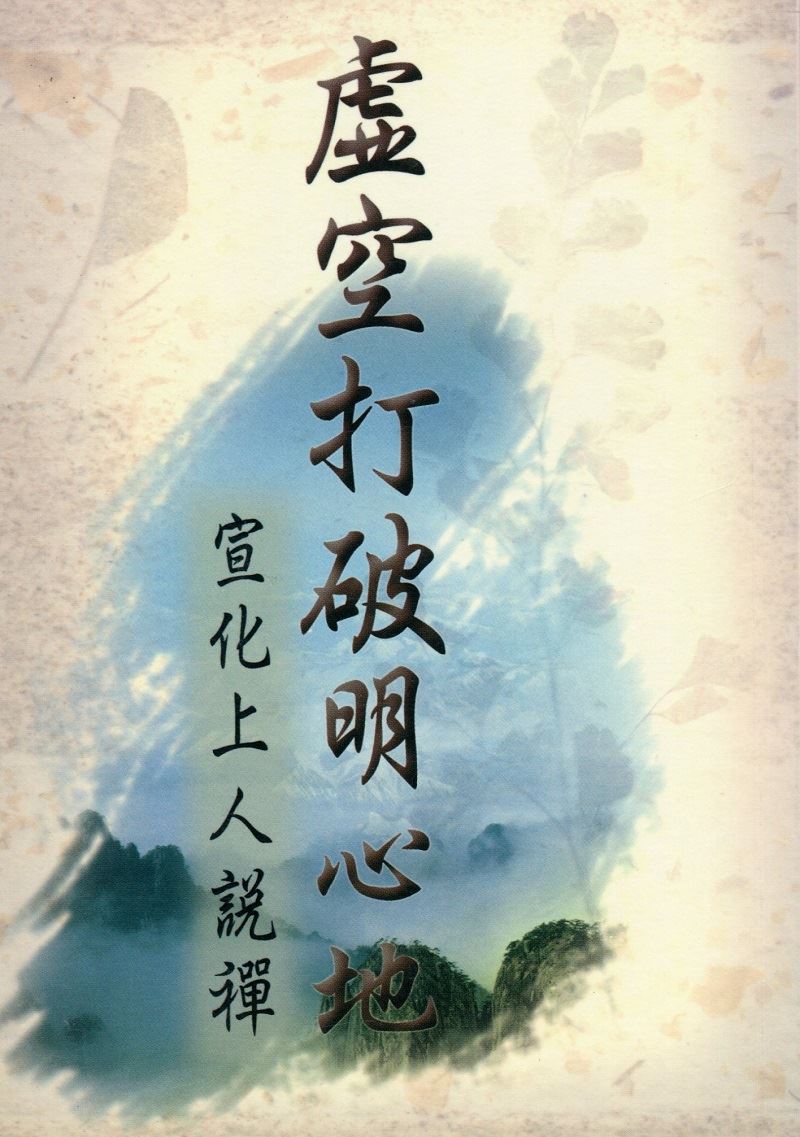 虛空打破明心地
宣化上人說禪